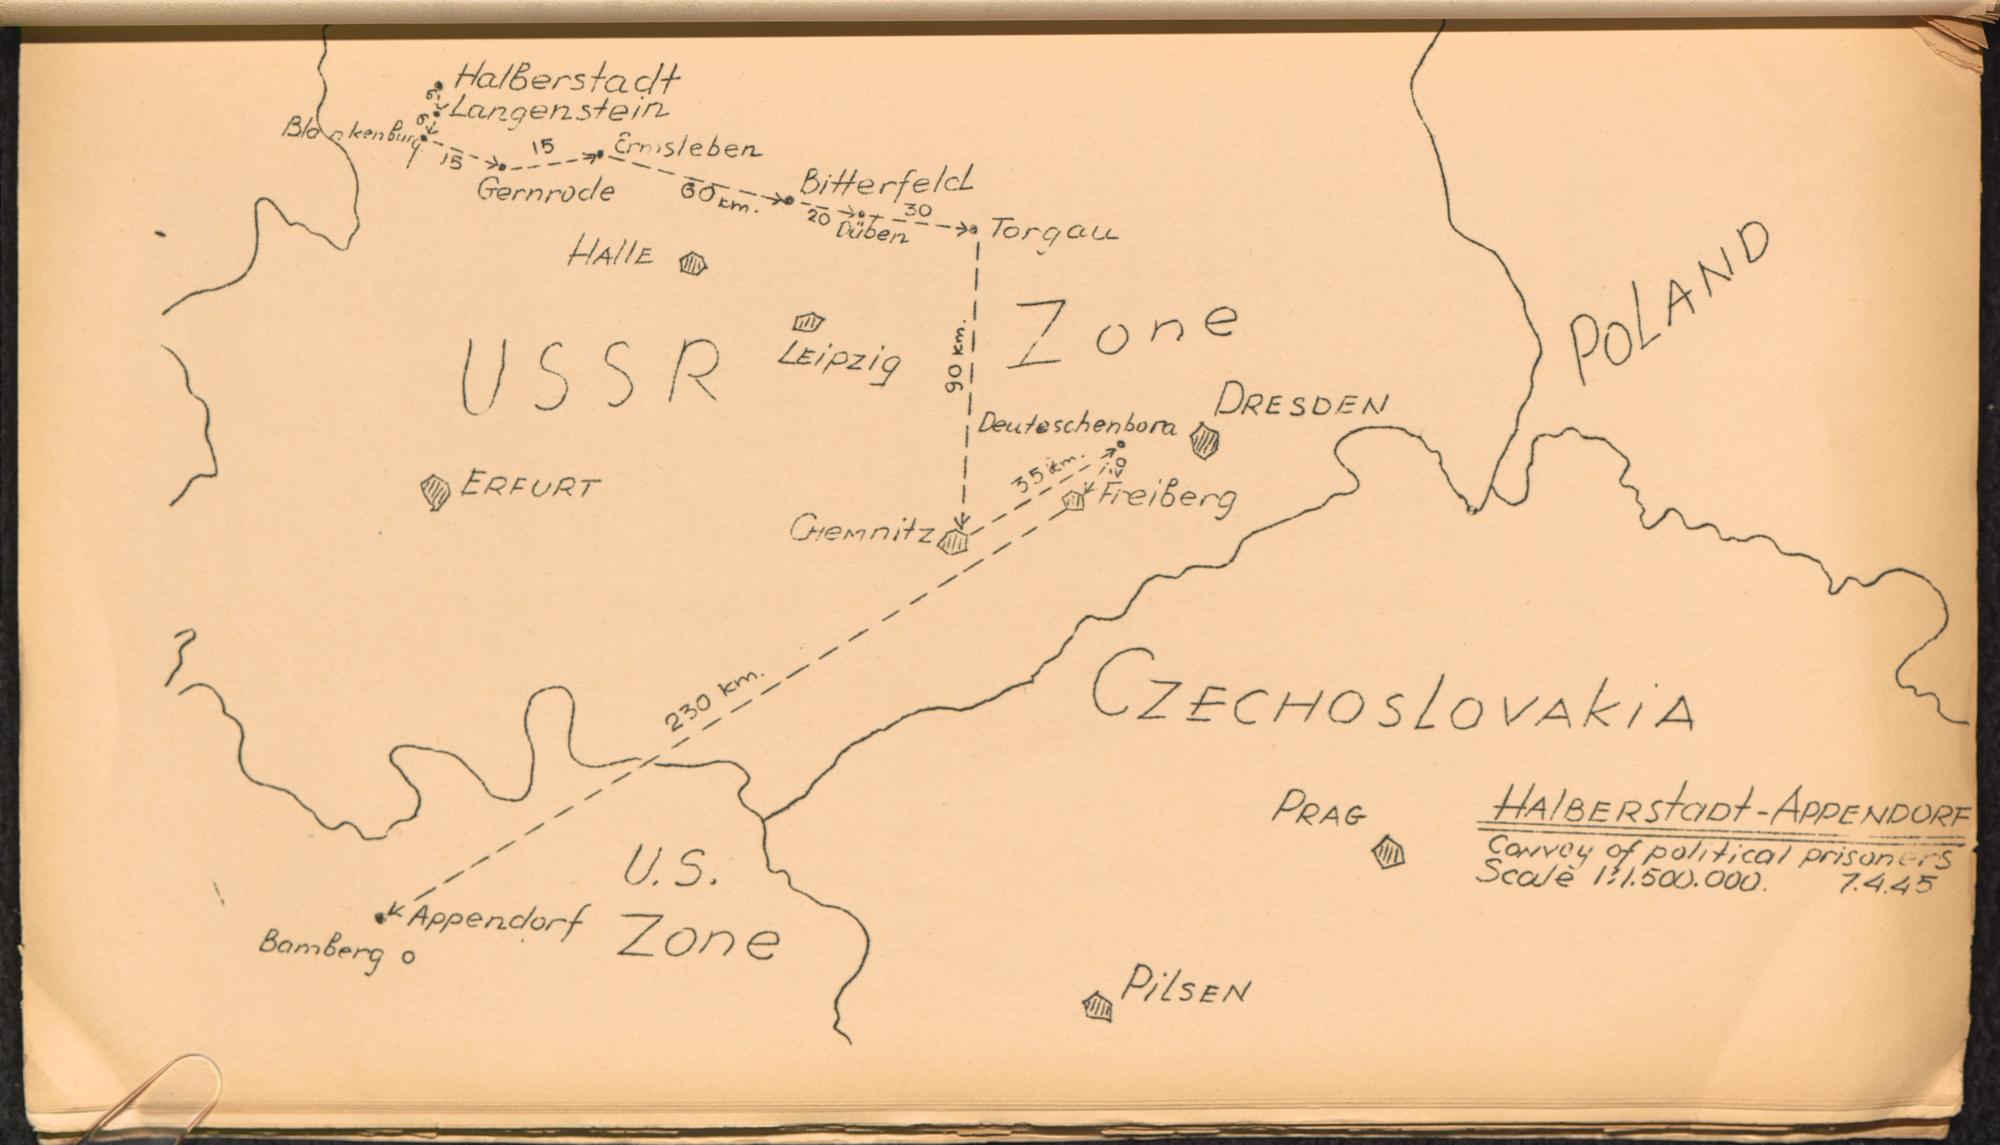 Halberstadt
6
Langenstein
6
Blankenburg
15
15
Ermsleben
Gernrode
60 km.
Bitterfeld
20
30
Düben
Torgau
HALLE
USSR Zone
LEipzig
90 km.
POLAND
DRESDEN
Deuteschenbora
35 km.
Freiberg
ERFURT
Chemnitz
230 km.
CZECHOSLOVAKIA
PRAG
HALBERSTADT-APPENDORF
Convoy of political prisoners
Scale 1:1.500.000. 7.4.45
U.S.
Zone
Appendorf
Bamberg
PILSEN